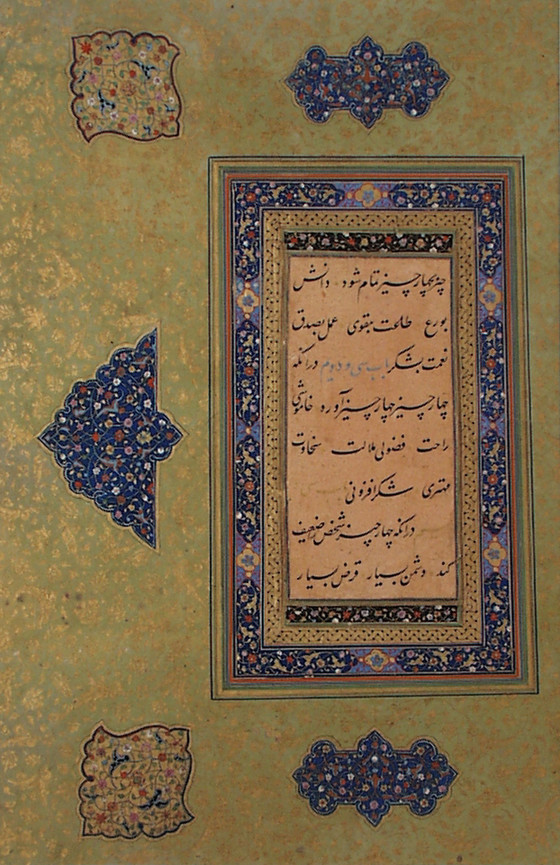 چیز بچهار چیز تمام شود دانش
بورع طاعت بتقوی عمل بصدق
نعمت بشکر باب سی و دوم در آنکه
چهار چیز چهار چیز آورد خاموشی
راحت فضولی ملالت سخاوت
مهتری شکر افزونی
در آنکه چهار چیز شخص را ضعیف
کند دشمن بسیار قرض بسیار